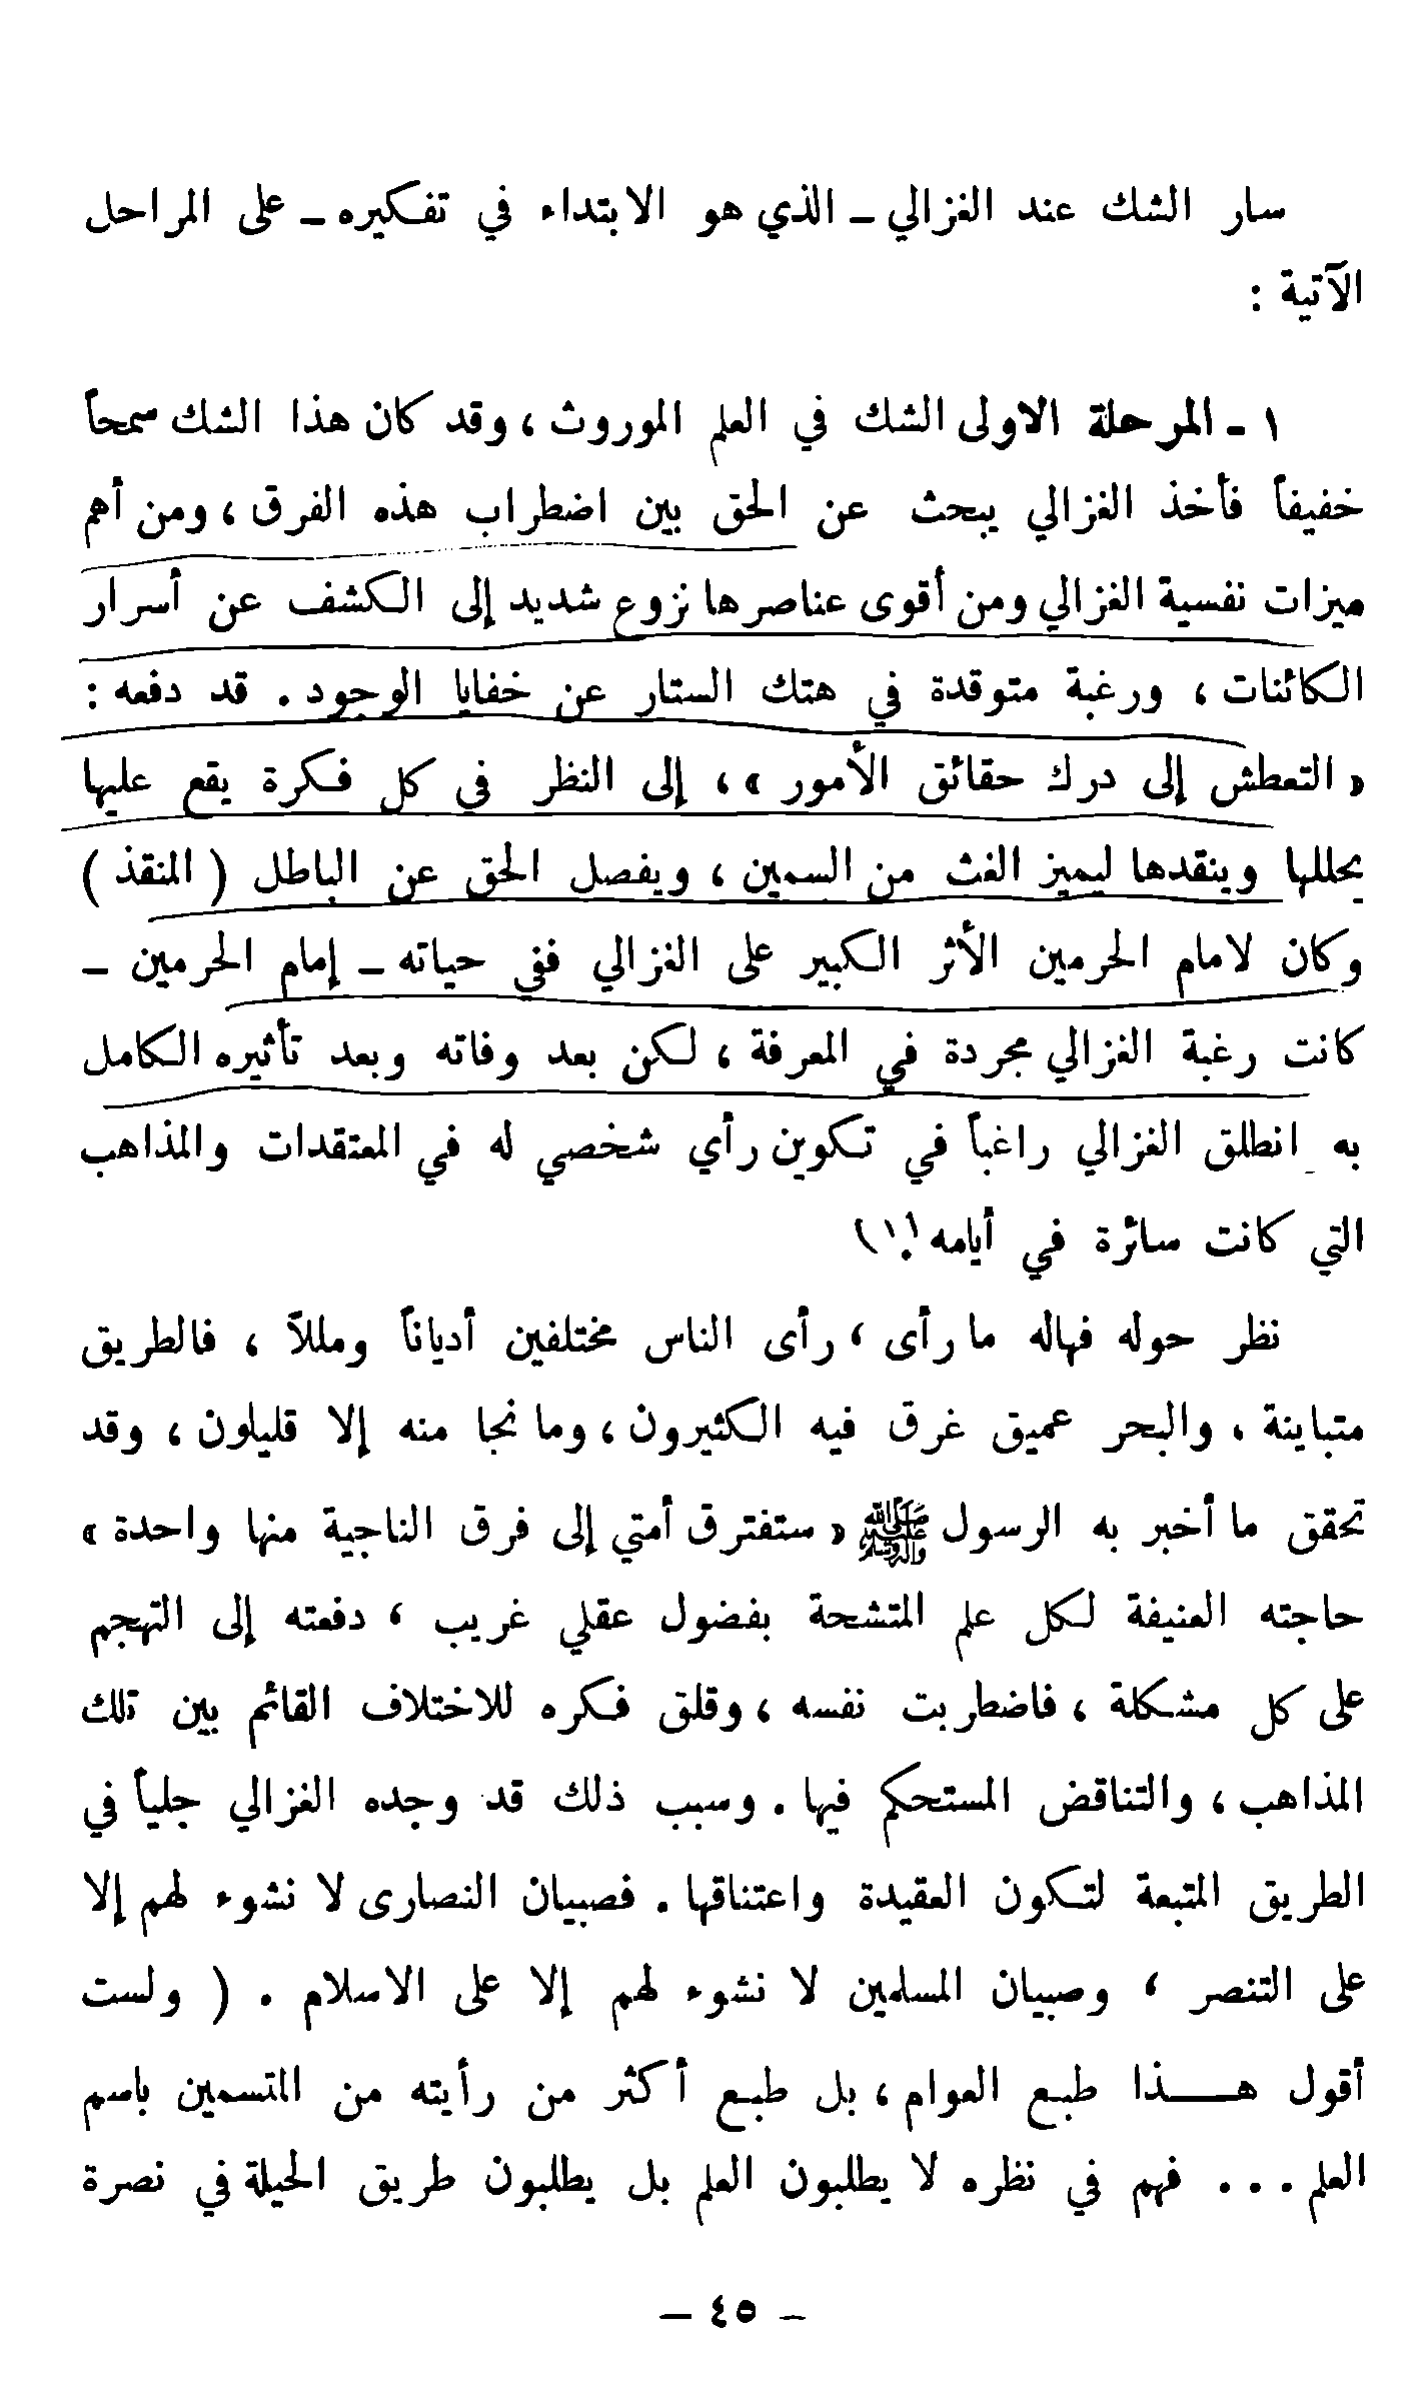 سار الشك عند الغزالي ـ الذي هو الابتداء في تفكيره ـ على المراحل
الآتية :
١ ـ المرحلة الاولى الشك في العلم الموروث ، وقد كان هذا الشك سمحاً
خفيفاً فأخذ الغزالي يبحث عن الحق بين اضطراب هذه الفرق ، ومن أهم
ميزات نفسية الغزالي ومن أقوى عناصرها نزوع شديد إلى الكشف عن أسرار
الكائنات ، ورغبة متوقدة في هتك الستار عن خفايا الوجود . قد دفعه :
« التعطش إلى درك حقائق الأمور » ، إلى النظر في كل فكرة يقع عليها
يحللها وينقدها ليميز الغث من السمين ، ويفصل الحق عن الباطل ( المنقذ )
وكان لامام الحرمين الأثر الكبير على الغزالي ففي حياته ـ إمام الحرمين ـ
كانت رغبة الغزالي مجردة في المعرفة ، لكن بعد وفاته وبعد تأثيره الكامل
به انطلق الغزالي راغباً في تكوين رأي شخصي له في المعتقدات والمذاهب
التي كانت سائرة في أيامه (١)
نظر حوله فهاله ما رأى ، رأى الناس مختلفين أدياناً ومللاً ، فالطريق
متباينة ، والبحر عميق غرق فيه الكثيرون ، وما نجا منه إلا قليلون ، وقد
تحقق ما أخبر به الرسول ﷺ « ستفترق أمتي إلى فرق الناجية منها واحدة »
حاجته العنيفة لكل علم المتشحة بفضول عقلي غريب ، دفعته إلى التهجم
على كل مشكلة ، فاضطربت نفسه ، وقلق فكره للاختلاف القائم بين تلك
المذاهب ، والتناقض المستحكم فيها . وسبب ذلك قد وجده الغزالي جلياً في
الطريق المتبعة لتكون العقيدة واعتناقها . فصبيان النصارى لا نشوء لهم إلا
على التنصر ، وصبيان المسلمين لا نشوء لهم إلا على الاسلام . ( ولست
أقول هـــذا طبع العوام ، بل طبع أكثر من رأيته من المتسمين باسم
العلم . . . فهم في نظره لا يطلبون العلم بل يطلبون طريق الحيلة في نصرة
ـ ٤٥ ـ